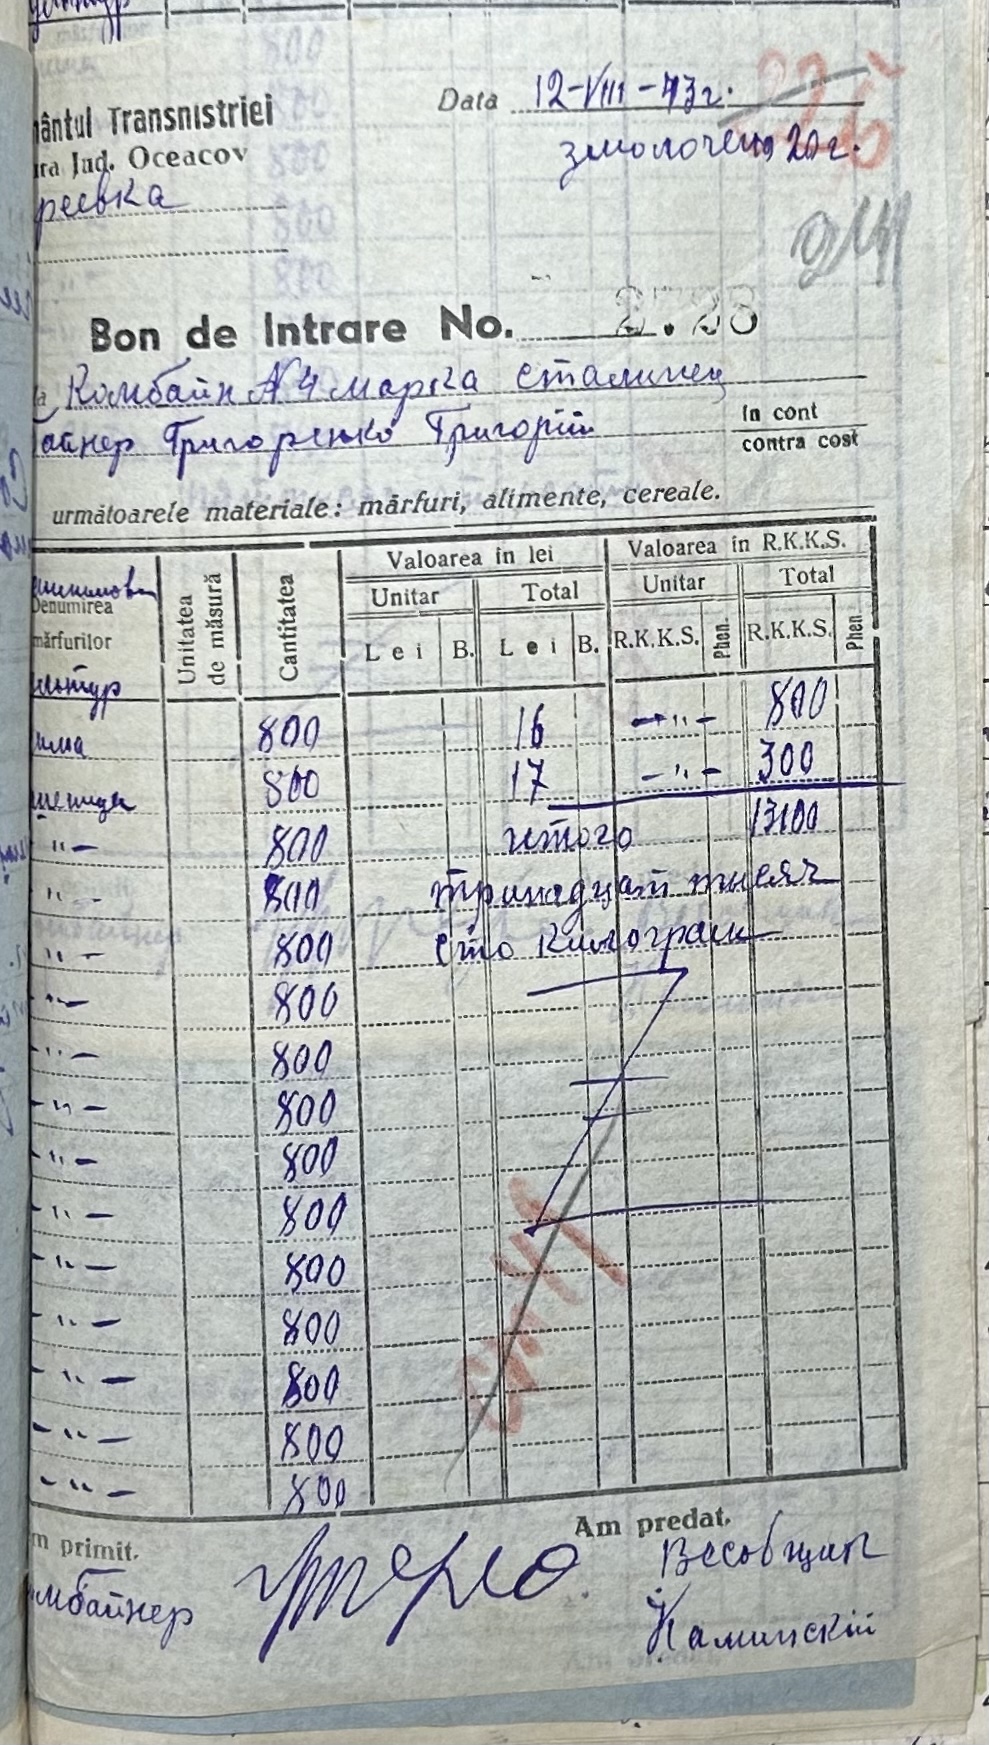 800
ântul Transnistriei
ra Jud. Oceacov
реевка
Data 12-VIII-43г.
змолочено 20г.
Bon de Intrare No. 2728
Комбайн №4 марка сталинец
айнер Григоренко Григорій
In cont
contra cost
următoarele materiale: mărfuri, alimente, cereale.
Denumirea
mărfurilor
Unitatea
de măsură
Cantitatea
Valoarea în lei
Valoarea în R.K.K.S.
Unitar
Total
Unitar
Total
Lei B. Lei B. R.K.K.S. Phen. R.K.K.S. Phen.
культур
800 16 —"— 800
800 17 —"— 300
"— 800 итого 13100
"- 800 тринадцат тысяч
"- 800 сто Килограм
"— 800
-"- 800
-"- 800
-"- 800
-"- 800
-"- 800
-"- 800
-"- 800
-"- 800
-"- 800
m primit.
Am predat.
мбайнер
Весовщик
Каминскій